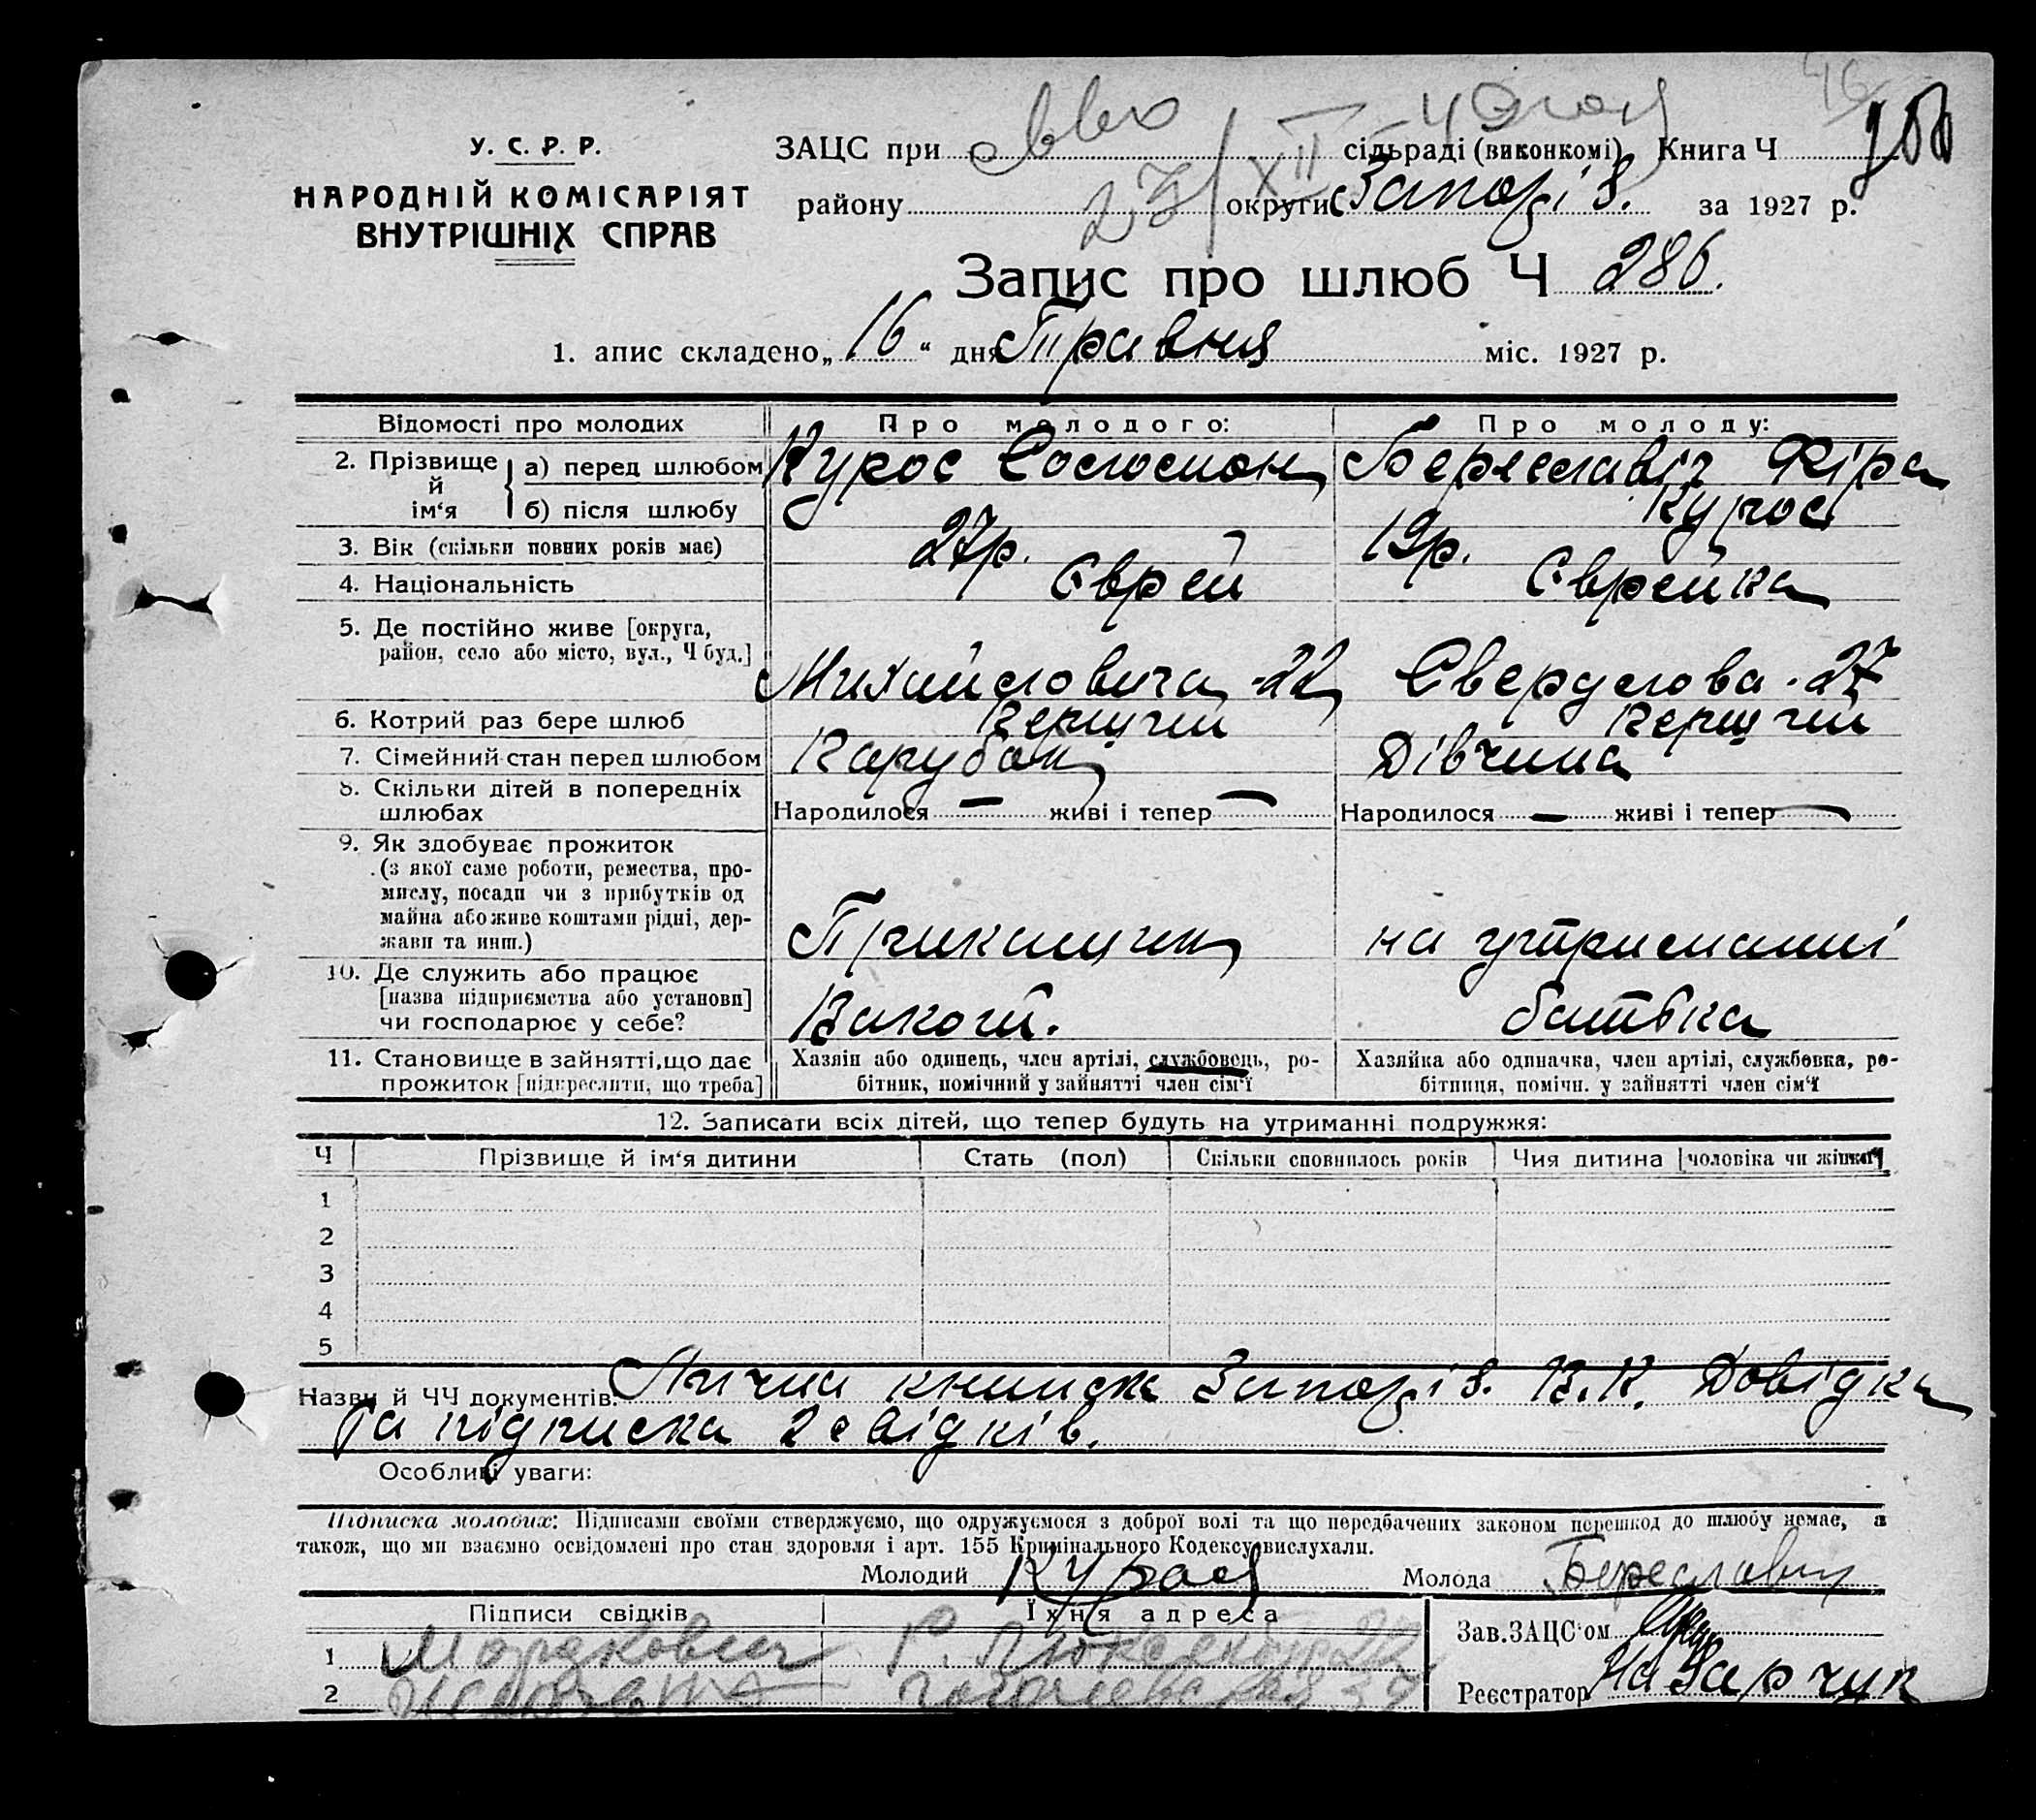 У. С. Р. Р.
НАРОДНІЙ КОМІСАРІЯТ
ВНУТРІШНІХ СПРАВ
ЗАЦС при сільраді (виконкомі) Книга Ч
району округи Запоріз. за 1927 р.
Запис про шлюб Ч 286.
1. апис складено „16“ дня Травня міс. 1927 р.
Відомості про молодих Про молодого: Про молоду:
2. Прізвище й ім‘я а) перед шлюбом Курос Соломон Береславіч Фіра
б) після шлюбу Курос
3. Вік (скільки повних років має) 27р. 19р.
4. Національність Єврей Єврейка
5. Де постійно живе [округа, район, село або місто, вул., Ч буд.] Михайловича - 22 Свердлова - 27
6. Котрий раз бере шлюб Перший Перший
7. Сімейний стан перед шлюбом Парубок Дівчина
8. Скільки дітей в попередніх шлюбах Народилося — живі і тепер — Народилося — живі і тепер —
9. Як здобуває прожиток
(з якої саме роботи, ремества, про-
мислу, посади чи з прибутків од
майна або живе коштами рідні, дер-
жави та инш.) Прикащик на утриманні
10. Де служить або працює
[назва підприємства або установи]
чи господарює у себе? батька
11. Становище в зайнятті, що дає прожиток [підкреслити, що треба]
Хазяін або одинець, член артілі, службовець, ро-
бітник, помічний у зайнятті член сім‘ї
Хазяйка або одиначка, член артілі, службовка, ро-
бітниця, помічн. у зайнятті член сім‘ї
12. Записати всіх дітей, що тепер будуть на утриманні подружжя:
Ч Прізвище й ім‘я дитини Стать (пол) Скільки сповнилось років Чия дитина [чоловіка чи жінки]
1
2
3
4
5
Назви й ЧЧ документів: Лична книжка Запоріз. В.К. Довідка
та підписка 2 свідків.
Особливі уваги:
Підписка молодих: Підписами своїми стверджуємо, що одружуємося з доброї волі та що передбачених законом перешкод до шлюбу немає, а
також, що ми взаємно освідомлені про стан здоровля і арт. 155 Кримінального Кодексу вислухали.
Молодий Молода Береславич
Підписи свідків Їхня адреса Зав. ЗАЦС‘ом
1
2 Реєстратор Назарчук